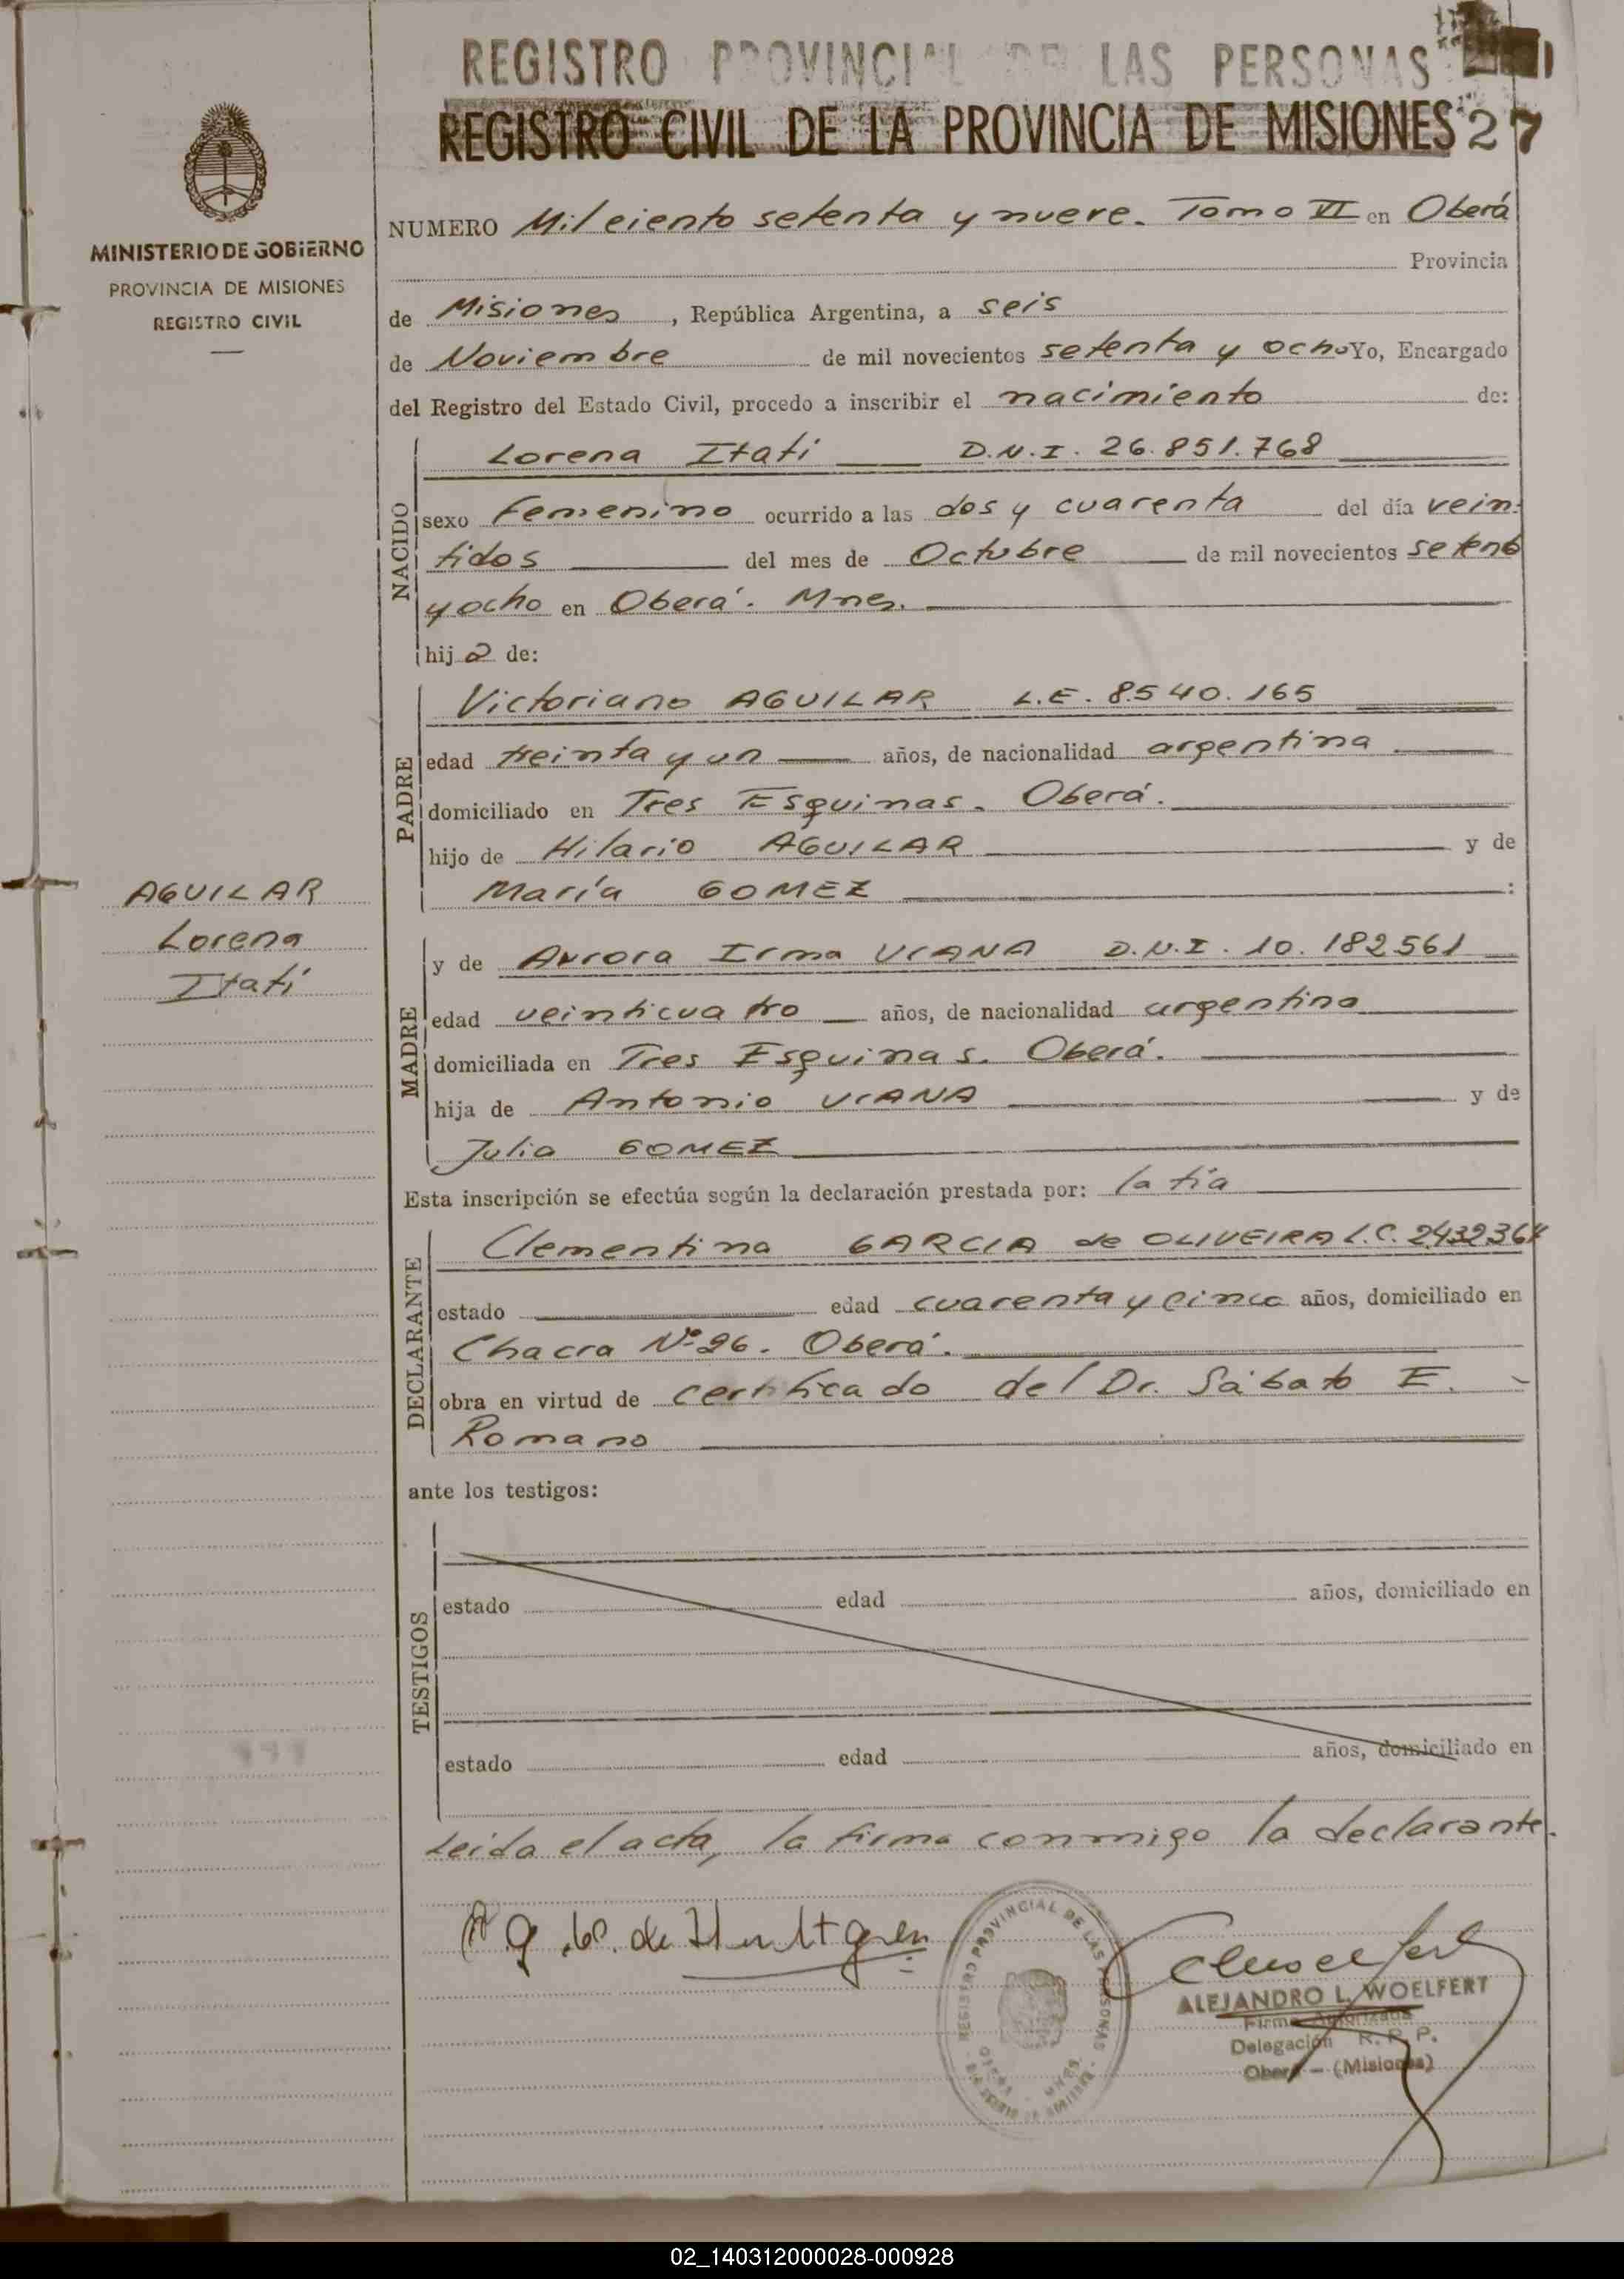 REGISTRO PROVINCIAL DE LAS PERSONAS
REGISTRO CIVIL DE LA PROVINCIA DE MISIONES 27
MINISTERIO DE GOBIERNO
PROVINCIA DE MISIONES
REGISTRO CIVIL
NUMERO Mil ciento setenta y nueve. Tomo VI en Oberá
Provincia
de Misiones, República Argentina, a seis
de Noviembre de mil novecientos setenta y ocho Yo, Encargado
del Registro del Estado Civil, procedo a inscribir el nacimiento de:
NACIDO
Lorena Itatí D.N.I. 26.851.768
sexo Femenino ocurrido a las dos y cuarenta del día vein-
tidos del mes de Octubre de mil novecientos setenta
y ocho en Oberá. Mnes.
hija de:
PADRE
Victoriano AGUILAR L.E. 8.540.165
edad treinta y un años, de nacionalidad argentina
domiciliado en Tres Esquinas. Oberá.
hijo de Hilario AGUILAR y de
María GOMEZ :
AGUILAR
Lorena
Itatí
MADRE
y de Aurora Irma VIANA D.N.I. 10.182561
edad veinticuatro años, de nacionalidad argentina
domiciliada en Tres Esquinas. Oberá.
hija de Antonio VIANA y de
Julia GOMEZ
Esta inscripción se efectúa según la declaración prestada por: la tía
DECLARANTE
Clementina GARCIA de OLIVEIRA L.C. 2.432.364
estado edad cuarenta y cinco años, domiciliado en
Chacra Nº 26. Oberá.
obra en virtud de certificado del Dr. Sábato E.
Romano
ante los testigos:
TESTIGOS
estado edad años, domiciliado en
estado edad años, domiciliado en
Leída el acta, la firma conmigo la declarante.
REGISTRO PROVINCIAL DE LAS PERSONAS
ALEJANDRO L. WOELFERT
Firma Autorizada
Delegación R. P. P.
Oberá - (Misiones)
02_140312000028-000928